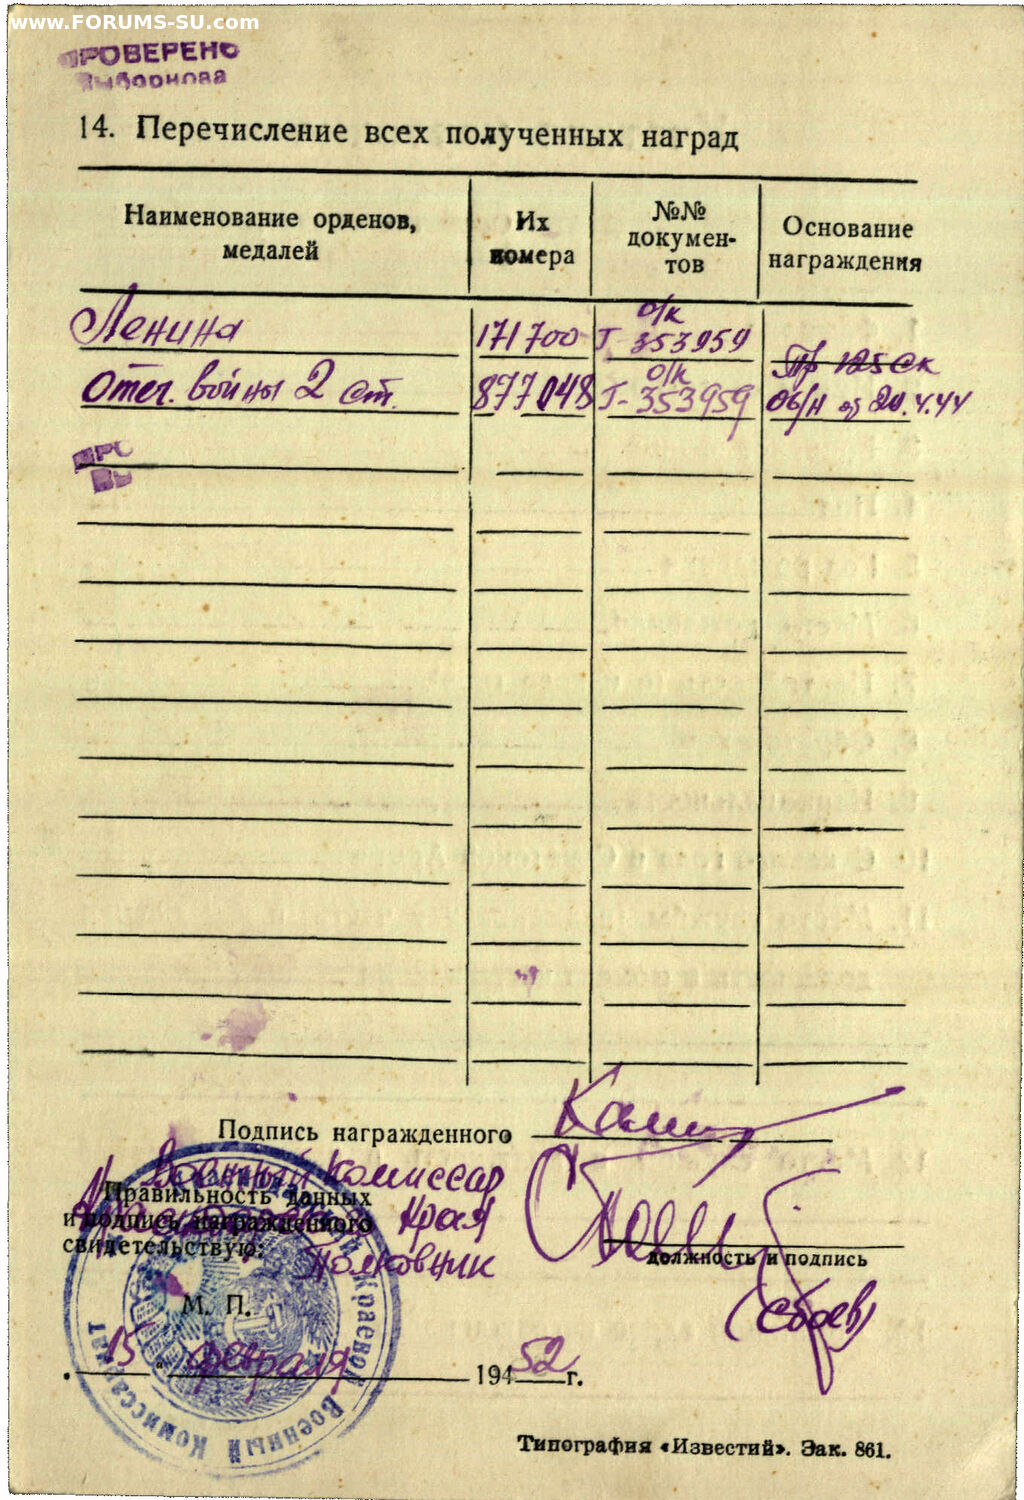 www.FORUMS-SU.com
ПРОВЕРЕНО
Выборнова
14. Перечисление всех полученных наград
Наименование орденов,
медалей
Их
номера
№№
докумен-
тов
Основание
награждения
Ленина
171700
о/к
Г-353959
Отеч. войны 2 ст.
877048
о/к
Г-353959
Пр 125 ск
06/н от 20.4.44
Подпись награжденного
Военный Комиссар
Правильность данных
и подпись награжденного
Края
свидетельствую:
Полковник
должность и подпись
М. П.
15 " февраля 1952 г.
Краевой Военный Комиссариат
Типография «Известий». Зак. 861.